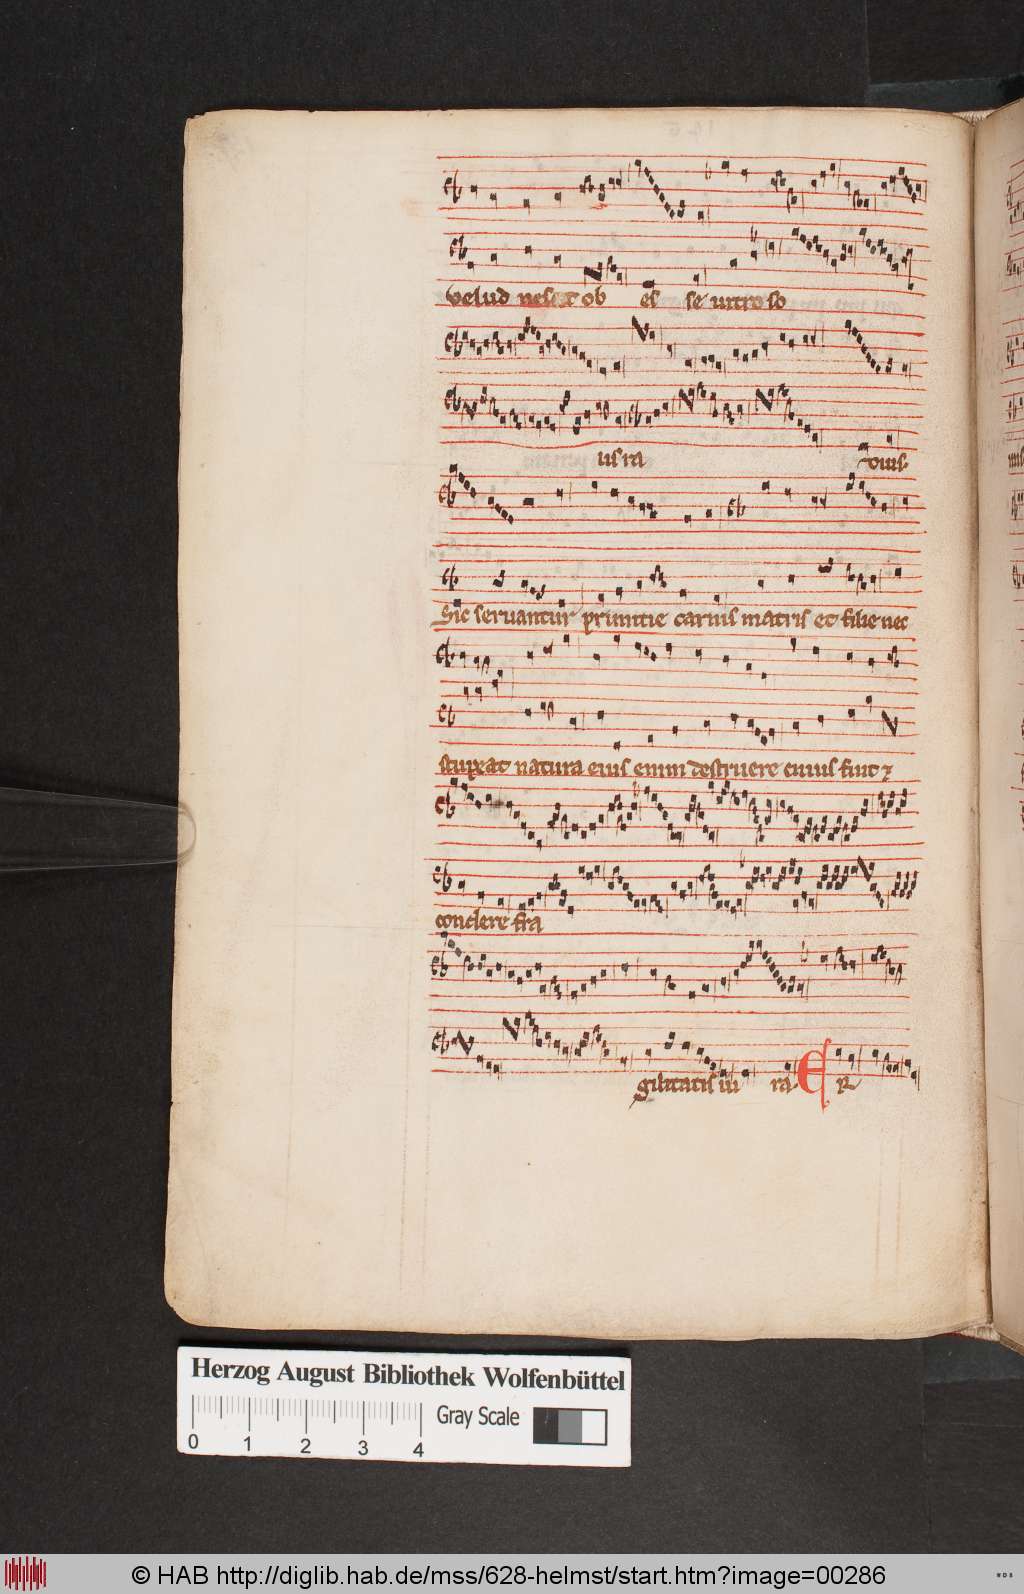 velud nescit ob es se vitro so
us ra dius
Sic servantur primitie carnis matris et filie nec
stupeat natura eius enim destruere cuius fuit
condere fra
gilitatis iu ra E
Herzog August Bibliothek Wolfenbüttel
0 1 2 3 4 Gray Scale
© HAB http://diglib.hab.de/mss/628-helmst/start.htm?image=00286